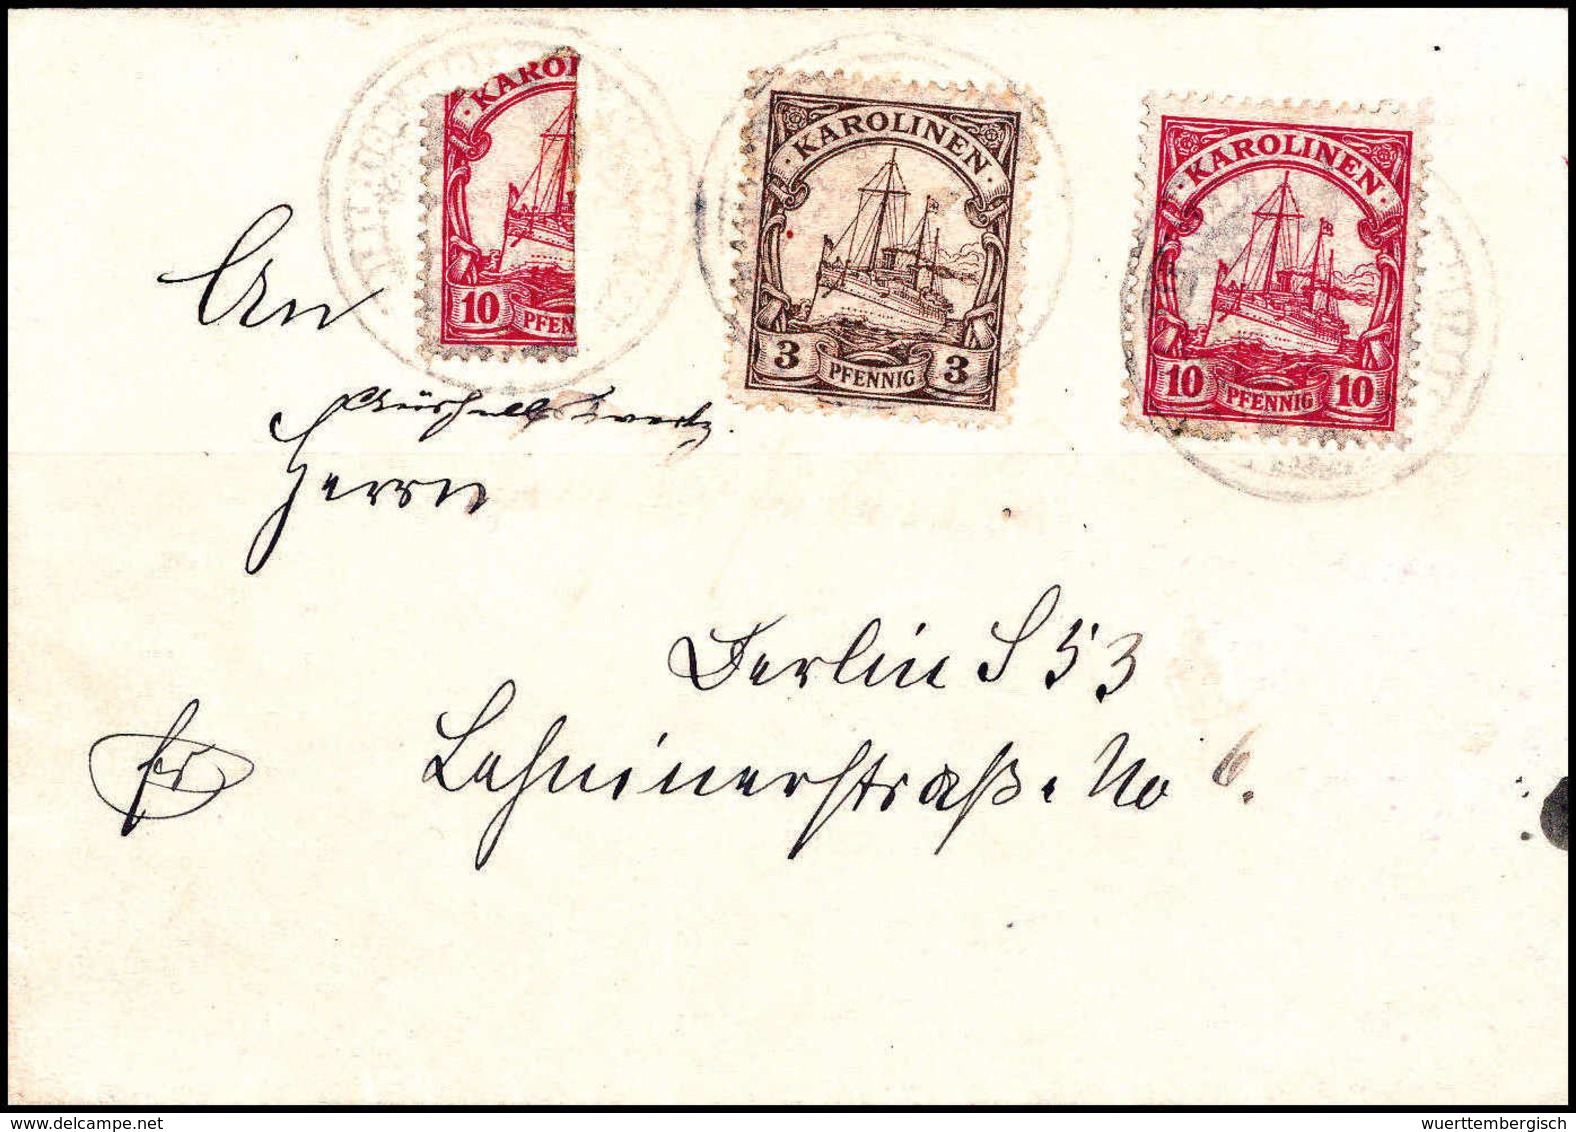 KAROL
10
PFEN
KAROLINEN
3 PFENNIG 3
KAROLINEN
10 PFENNIG 10
An
Herrn
Berlin S 53
Lehninerstraße No 6.
delcampe.net
wuerttembergisch